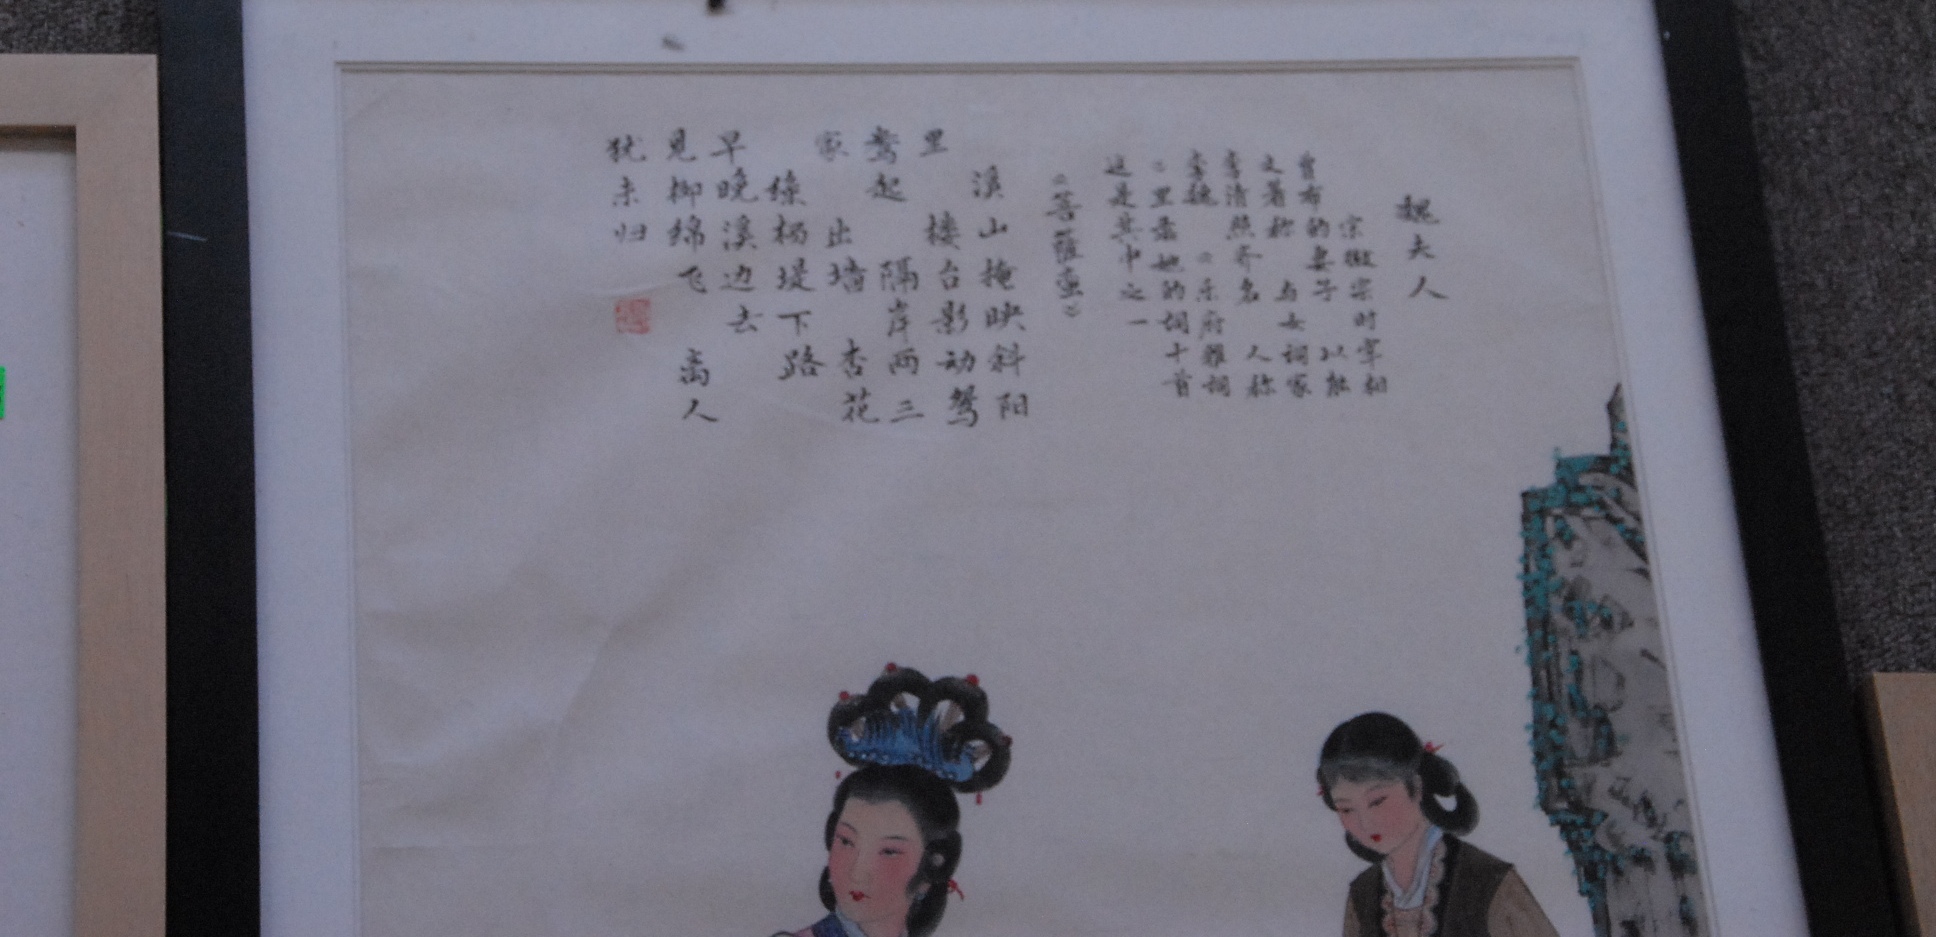 魏夫人
宋徽宗时宰相
曾布的妻子 以能
文著称 与女词家
李清照齐名 人称
李魏 《乐府雅词
》里录她的词十首
这是其中之一
《菩薩蛮》
溪山掩映斜阳
里 楼台影动鸳
鸯起 隔岸两三
家 出墙 杏花
绿杨堤下路
早晚溪边去
见柳绵飞 离人
犹未归